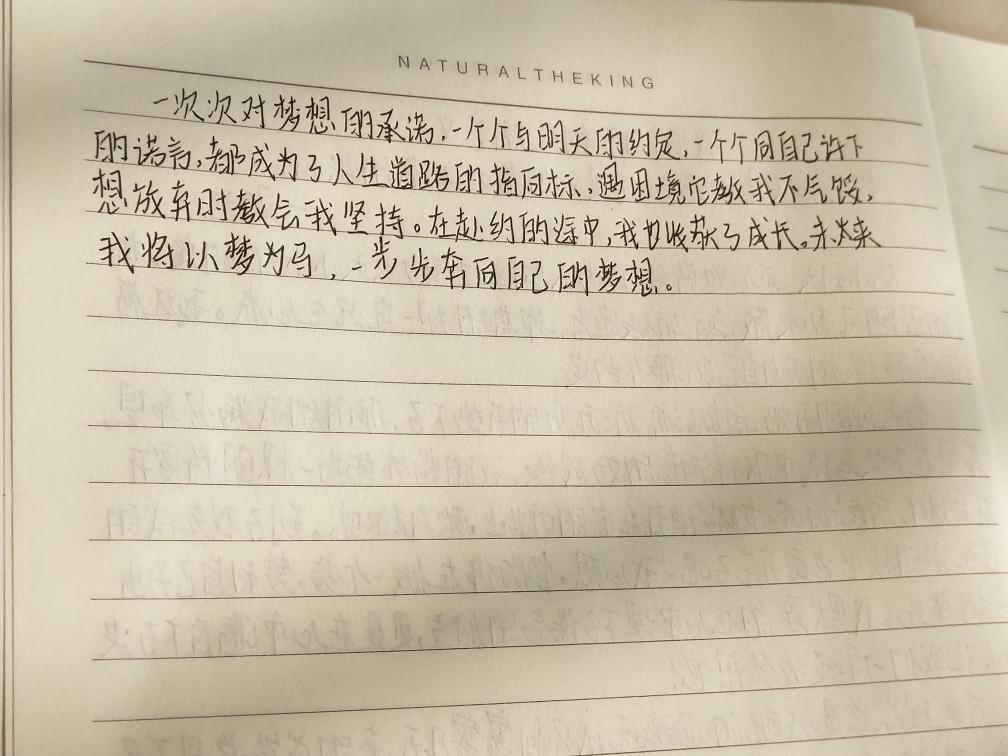 NATURALTHEKING
一次次对梦想的承诺,一个个与明天的约定,一个个同自己许下
的诺言,都成为了人生道路的指向标,遇困境它教我不气馁,
想放弃时教会我坚持。在赴约的途中,我也收获了成长。未来
我将以梦为马,一步步奔向自己的梦想。